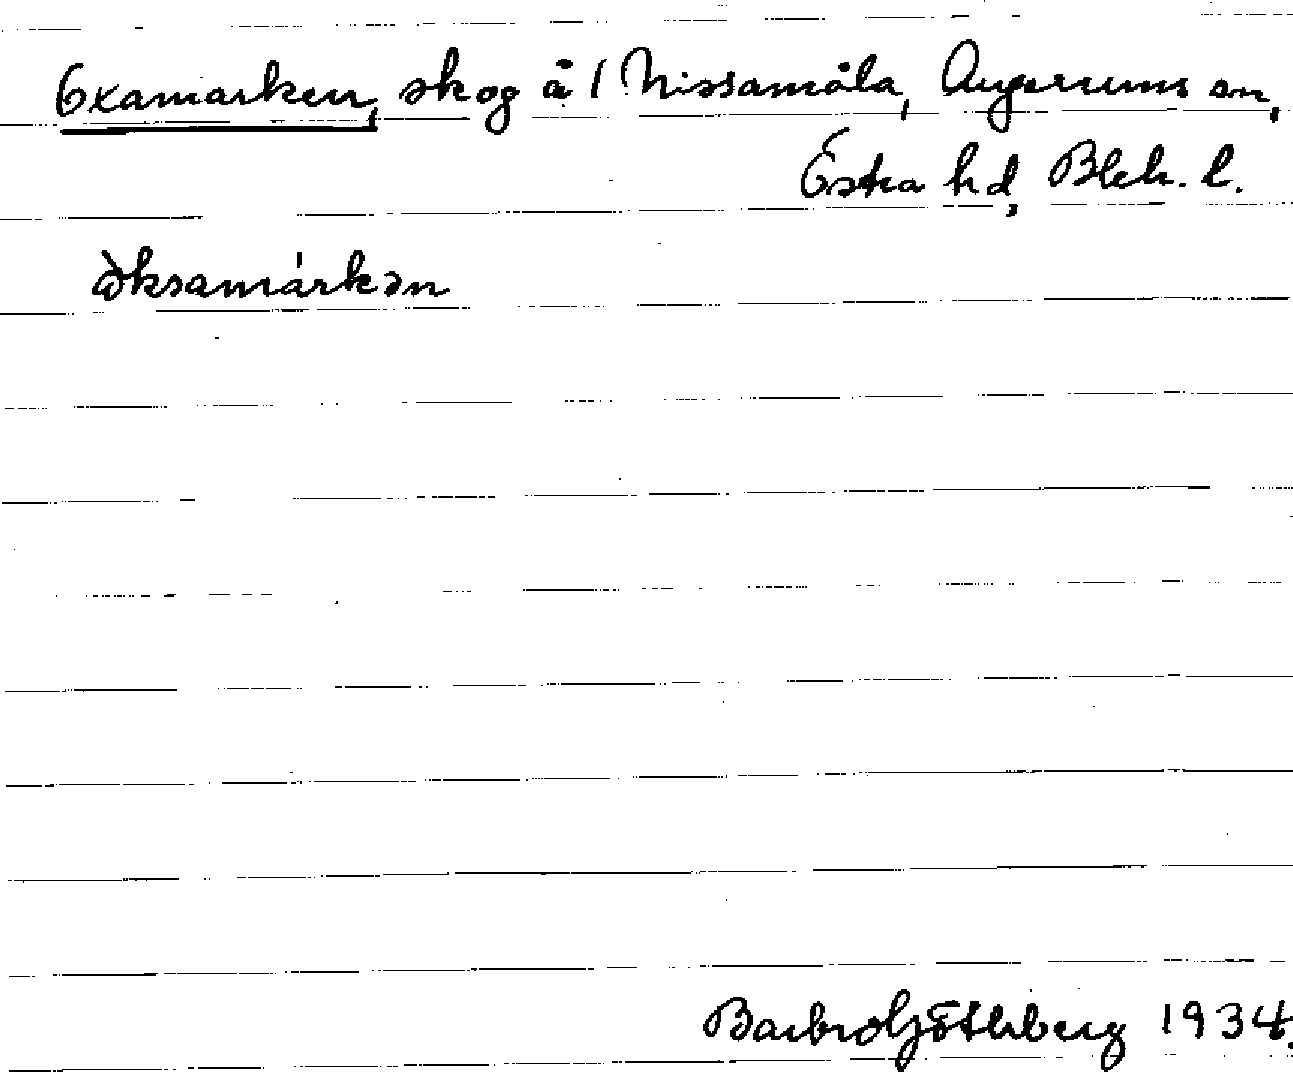 Öxamarken, skog å 1 Nissamåla, Augerums sn,
Östra hd, Blek. l.
Barbro Götlberg 1934.